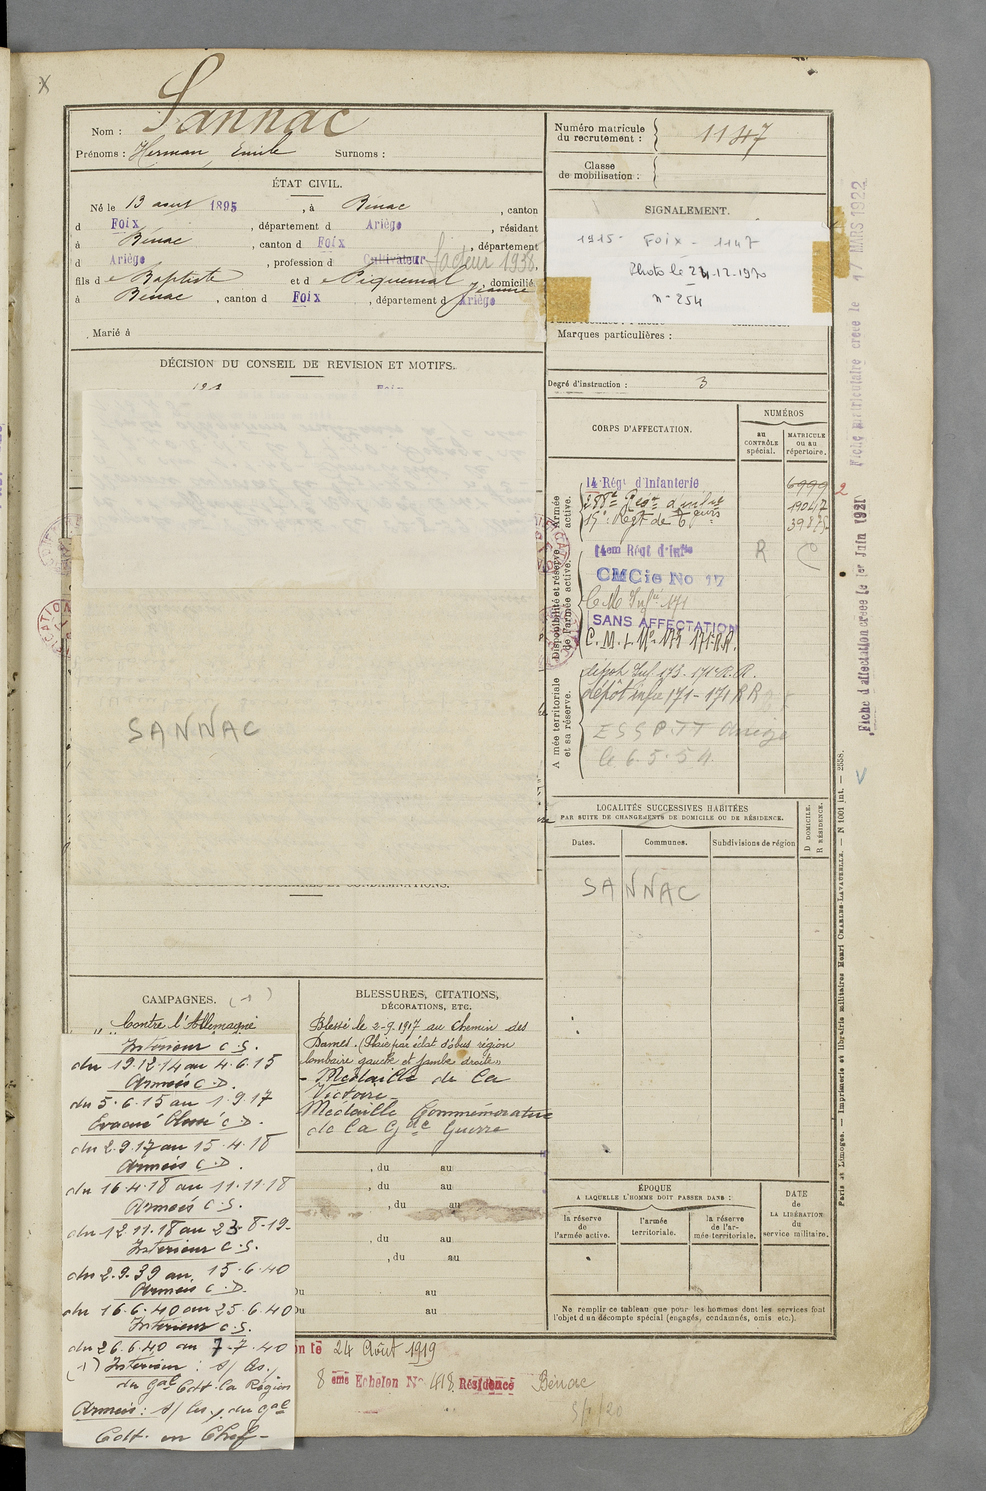 X
Nom : Sannac
Prénoms : Herman, Emile Surnoms :
ÉTAT CIVIL.
Né le 13 aout 1895, à Bénac, canton
d Foix, département d Ariège, résidant
à Bénac, canton d Foix, département
d Ariège, profession d Cultivateur facteur 1938.
fils de Baptiste et de Piquemal Jeanne domicilié
à Bénac, canton d Foix, département d Ariège
Marié à
DÉCISION DU CONSEIL DE REVISION ET MOTIFS.
SANNAC
CAMPAGNES. (1)
Contre l'Allemagne
Intérieur C.S.
du 19.12.14 au 4.6.15
Armées C.D.
du 5.6.15 au 1.9.17
Evacué blessé C.D.
du 2.9.17 au 15.4.18
Armées C.D.
du 16.4.18 au 11.11.18
Armées C.S.
du 12.11.18 au 23.8.19
Intérieur C.S.
du 2.9.39 au 15.6.40
Armées C.D.
du 16.6.40 au 25.6.40
Intérieur C.S.
du 26.6.40 au 7.7.40
(1) Intérieur : s/ les
du Gal Cdt la Région
Armées : s/ les du Gal
Cdt. en Chef-
BLESSURES, CITATIONS,
DÉCORATIONS, ETC.
Blessé le 2-9-1917 au Chemin des
Dames. (Plaie par éclat d'obus région
lombaire gauche et jambe droite)
- Médaille de la
Victoire.
Médaille Commémorative
de la Gde Guerre
, du au
, du au
, du au
, du au
, du au
Du au
Du au
on le 24 Août 1919
8 eme Echelon No 418 Résidence Bénac
Numéro matricule
du recrutement : 1147
Classe
de mobilisation :
SIGNALEMENT.
1915 - Foix - 1147
Photo le 24.12.1970
n° 254
Marques particulières :
Degré d'instruction : 3
CORPS D'AFFECTATION.
NUMÉROS
au
CONTRÔLE
spécial.
MATRICULE
ou au
répertoire.
Armée
active.
14 Régt d'Infanterie 6999
Disponibilité et réserve
de l'armée active.
14em Régt d'Infie R
CMCie No 17
C M Infie 171
SANS AFFECTATION
C.M.I. No 173 171 R.R.
Armée territoriale
et sa réserve.
dépôt Inf 173 - 171 R.R.
dépôt infie 171 - 171 RR
ESSPTT Ariège
le 6.5.54
LOCALITÉS SUCCESSIVES HABITÉES
PAR SUITE DE CHANGEMENTS DE DOMICILE OU DE RÉSIDENCE.
Dates. Communes. Subdivisions de région
D DOMICILE.
R RÉSIDENCE.
SANNAC
ÉPOQUE
A LAQUELLE L'HOMME DOIT PASSER DANS :
la réserve
de
l'armée active.
l'armée
territoriale.
la réserve
de l'ar-
mée territoriale.
DATE
de
LA LIBÉRATION
du
service militaire.
Ne remplir ce tableau que pour les hommes dont les services font
l'objet d'un décompte spécial (engagés, condamnés, omis etc.).
Fiche matriculaire créée le 17 MARS 1922
Fiche d'affectation créée le 1er Juin 1921
Paris et Limoges. — Imprimerie et librairie militaires Henri CHARLES-LAVAUZELLE. — N 1001 int. — 2558.